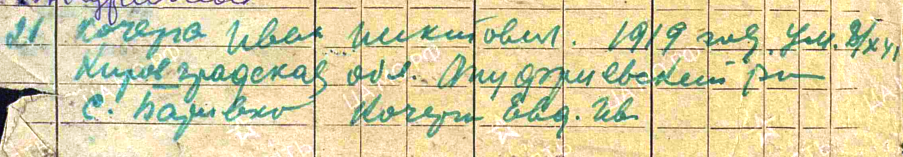 21 Кочерга Иван Никитович. 1919 год. Ум. 8/XII
Кировградская обл. Онуфриевский рн
с. Байревка Кочерги Евд. Ив.